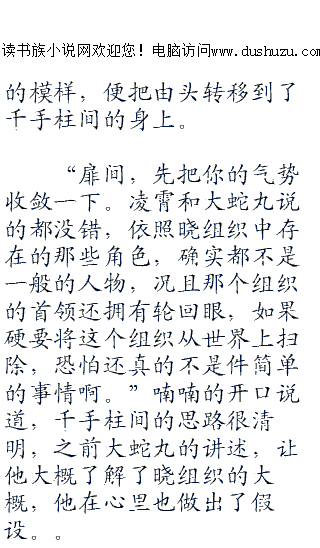 读书族小说网欢迎您！电脑访问www.dushuzu.com
的模样，便把由头转移到了
千手柱间的身上。
“扉间，先把你的气势
收敛一下。凌霄和大蛇丸说
的都没错，依照晓组织中存
在的那些角色，确实都不是
一般的人物，况且那个组织
的首领还拥有轮回眼，如果
硬要将这个组织从世界上扫
除，恐怕还真的不是件简单
的事情啊。”喃喃的开口说
道，千手柱间的思路很清
明，之前大蛇丸的讲述，让
他大概了解了晓组织的大
概，他在心里也做出了假
设。。